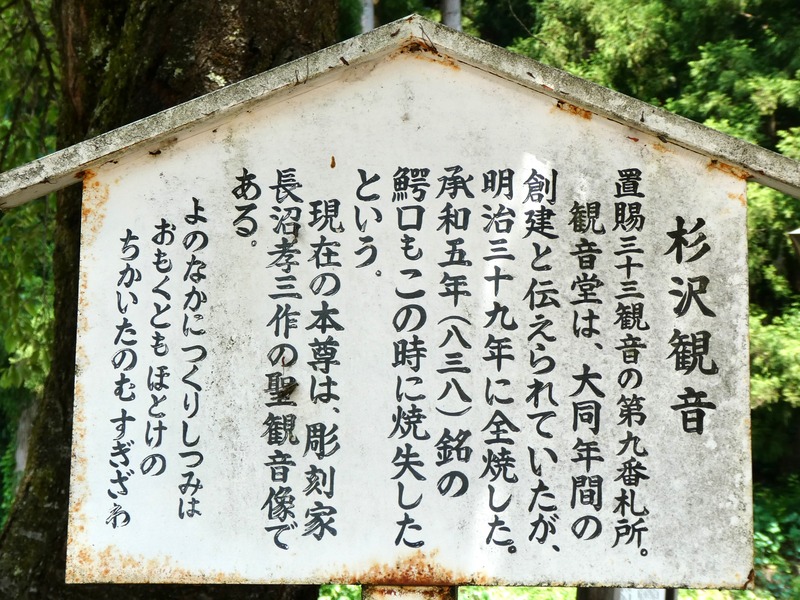 杉沢観音
置賜三十三観音の第九番札所。
観音堂は、大同年間の
創建と伝えられていたが、
明治三十九年に全焼した。
承和五年（八三八）銘の
鰐口もこの時に焼失した
という。
現在の本尊は、彫刻家
長沼孝三作の聖観音像で
ある。
よのなかにつくりしつみは
おもくともほとけの
ちかいたのむすぎざわ